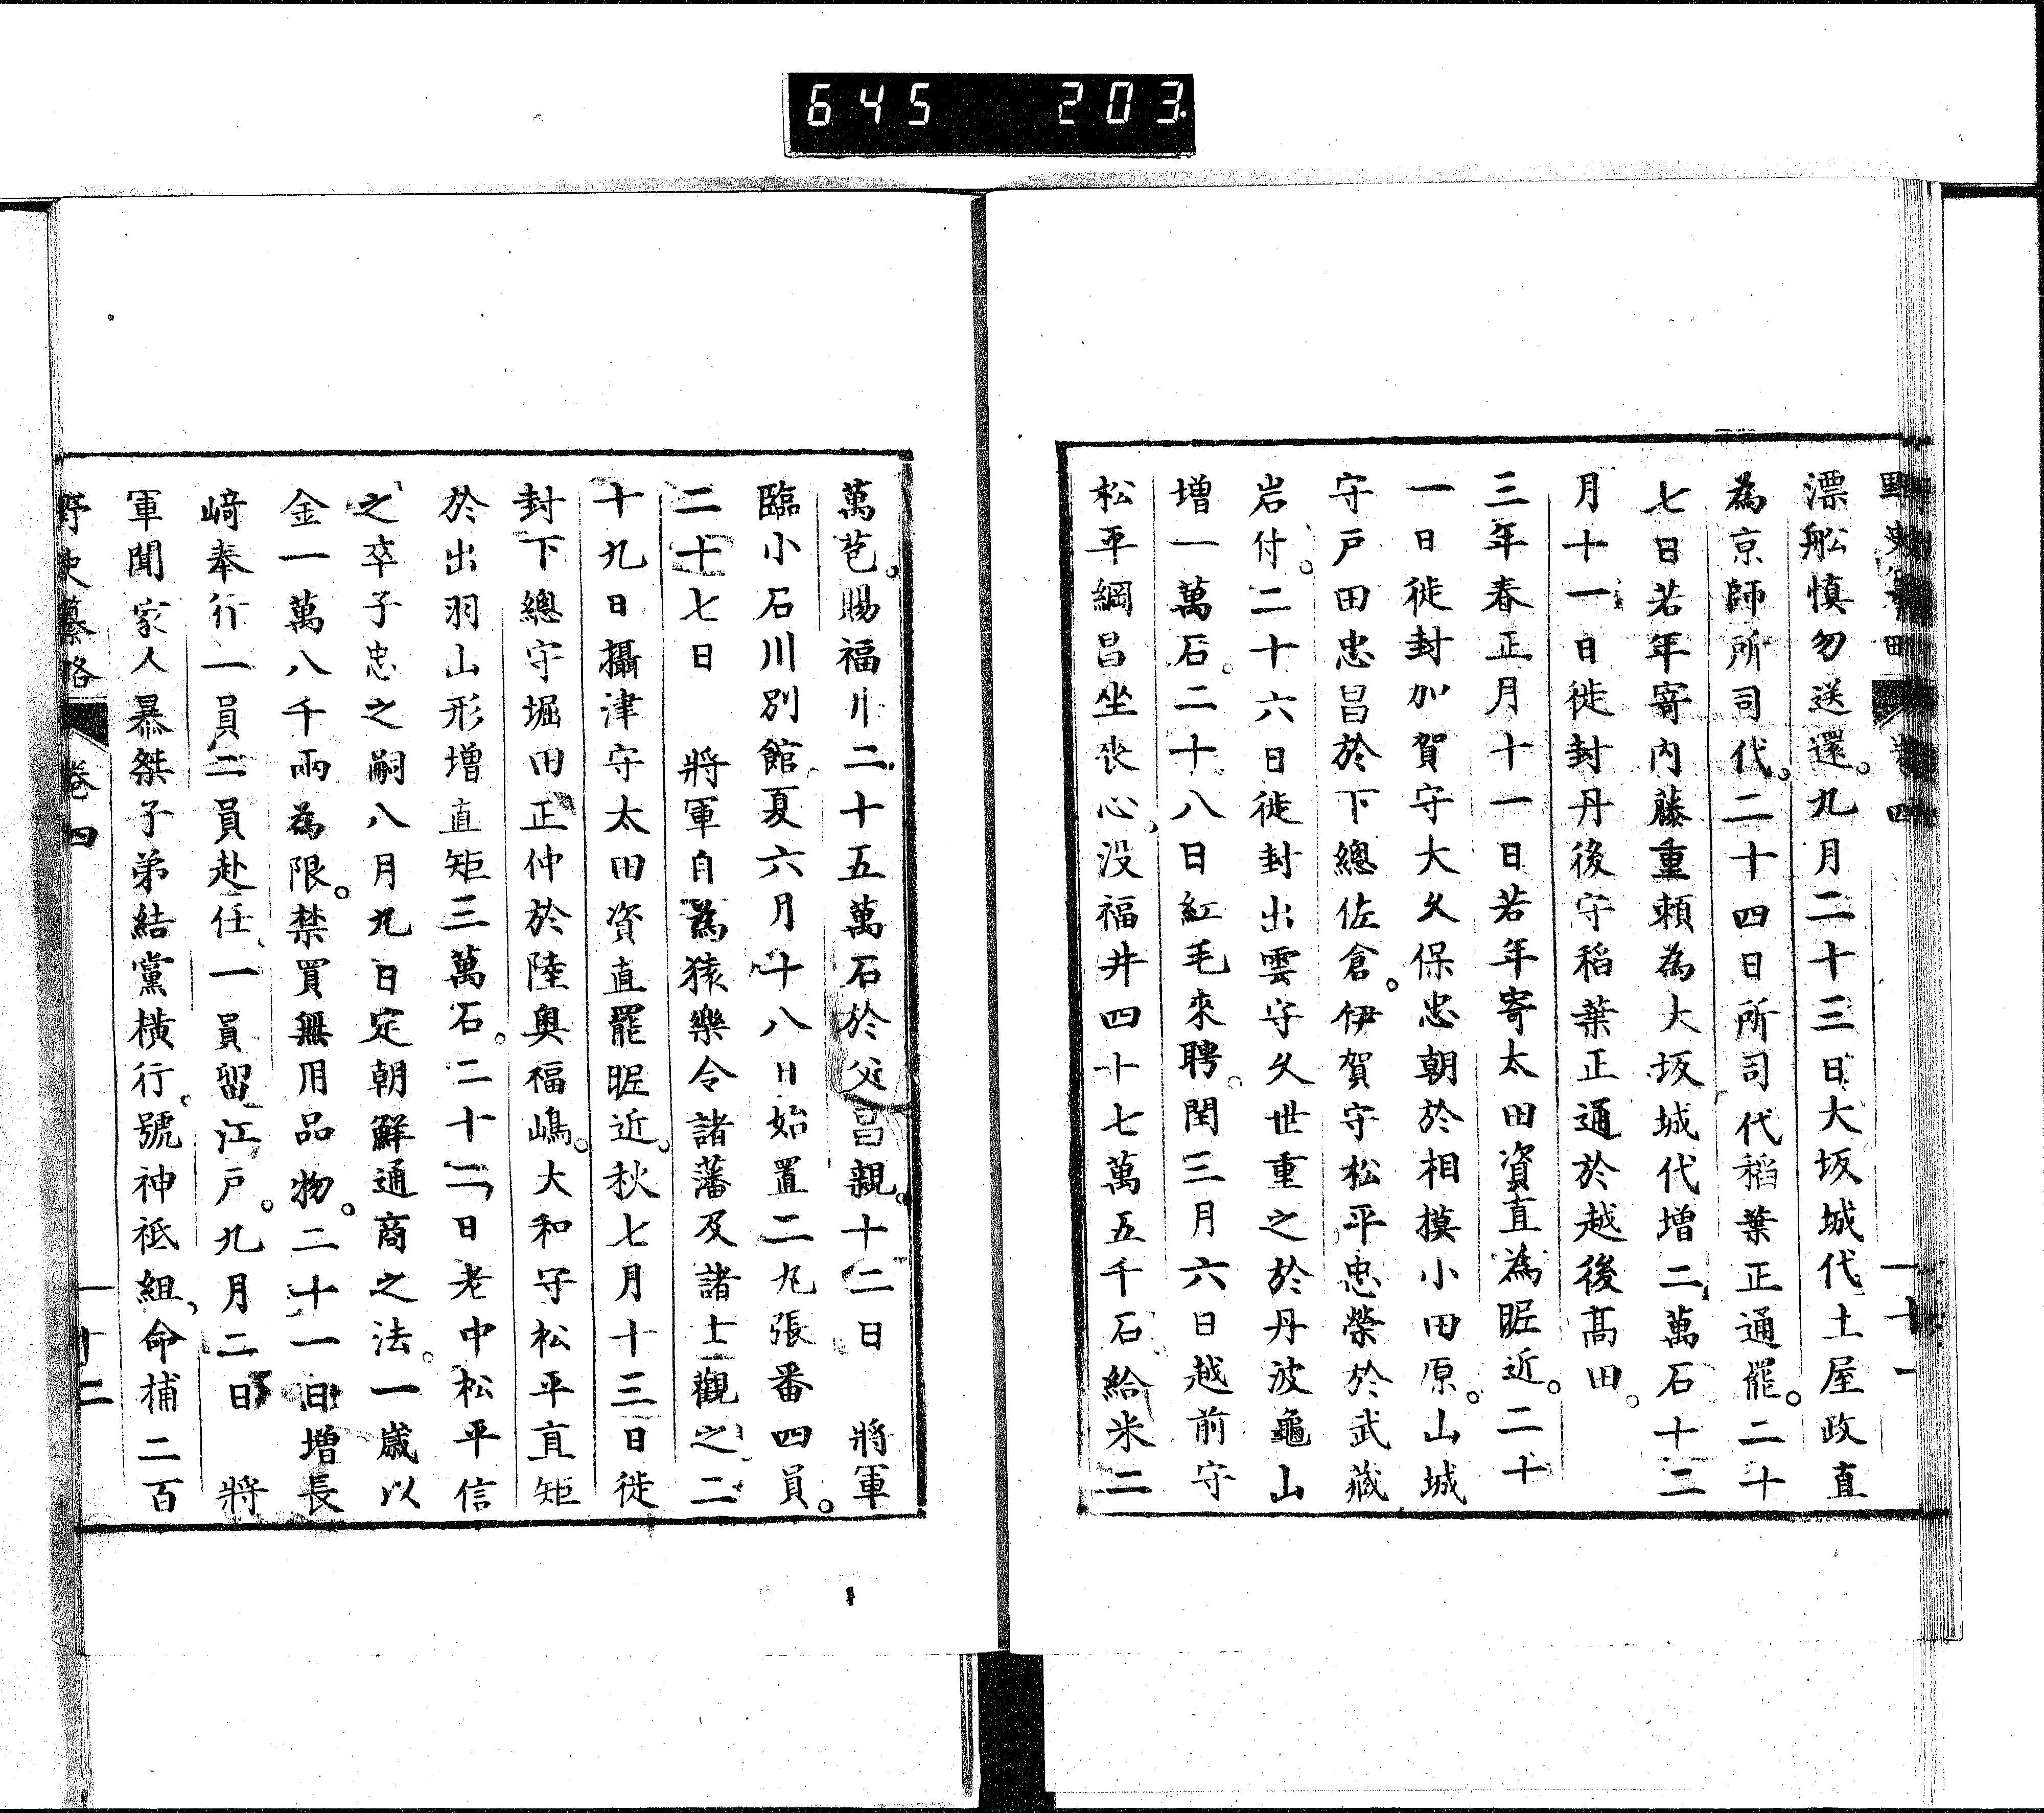 645 203
漂舩慎勿送還。九月二十三日大坂城代土屋政直
為京師所司代。二十四日所司代稻葉正通罷。二十
七日若年寄内藤重頼為大坂城代増二萬石十二
月十一日徙封丹後守稻葉正通於越後髙田。
三年春正月十一日若年寄太田資直為昵近。二十
一日徙封加賀守大久保忠朝於相摸小田原。山城
守戸田忠昌於下總佐倉。伊賀守松平忠榮於武藏
岩付。二十六日徙封出雲守久世重之於丹波龜山
増一萬石。二十八日紅毛來聘。閏三月六日越前守
松平綱昌坐喪心、没福井四十七萬五千石給米二
萬苞。賜福川二十五萬石於父昌親。十二日　將軍
臨小石川別館夏六月十八日始置二九張番四員。
二十七日　將軍自為猿樂令諸藩及諸士觀之二
十九日攝津守太田資直罷昵近。秋七月十三日徙
封下總守堀田正仲於陸奥福嶋。大和守松平直矩
於出羽山形増直矩三萬石。二十二日老中松平信
之卒子忠之嗣八月九日定朝鮮通商之法。一歳以
金一萬八千兩為限。禁買無用品物。二十一日増長
﨑奉行一員二員赴任、一員留江戸。九月二日　將
軍聞家人暴桀子弟結黨横行。號神祗組、命捕二百
野史纂略 卷四 十二